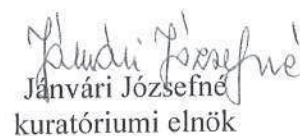 Jánvári Józsefné
Jánvári Józsefné
kuratóriumi elnök